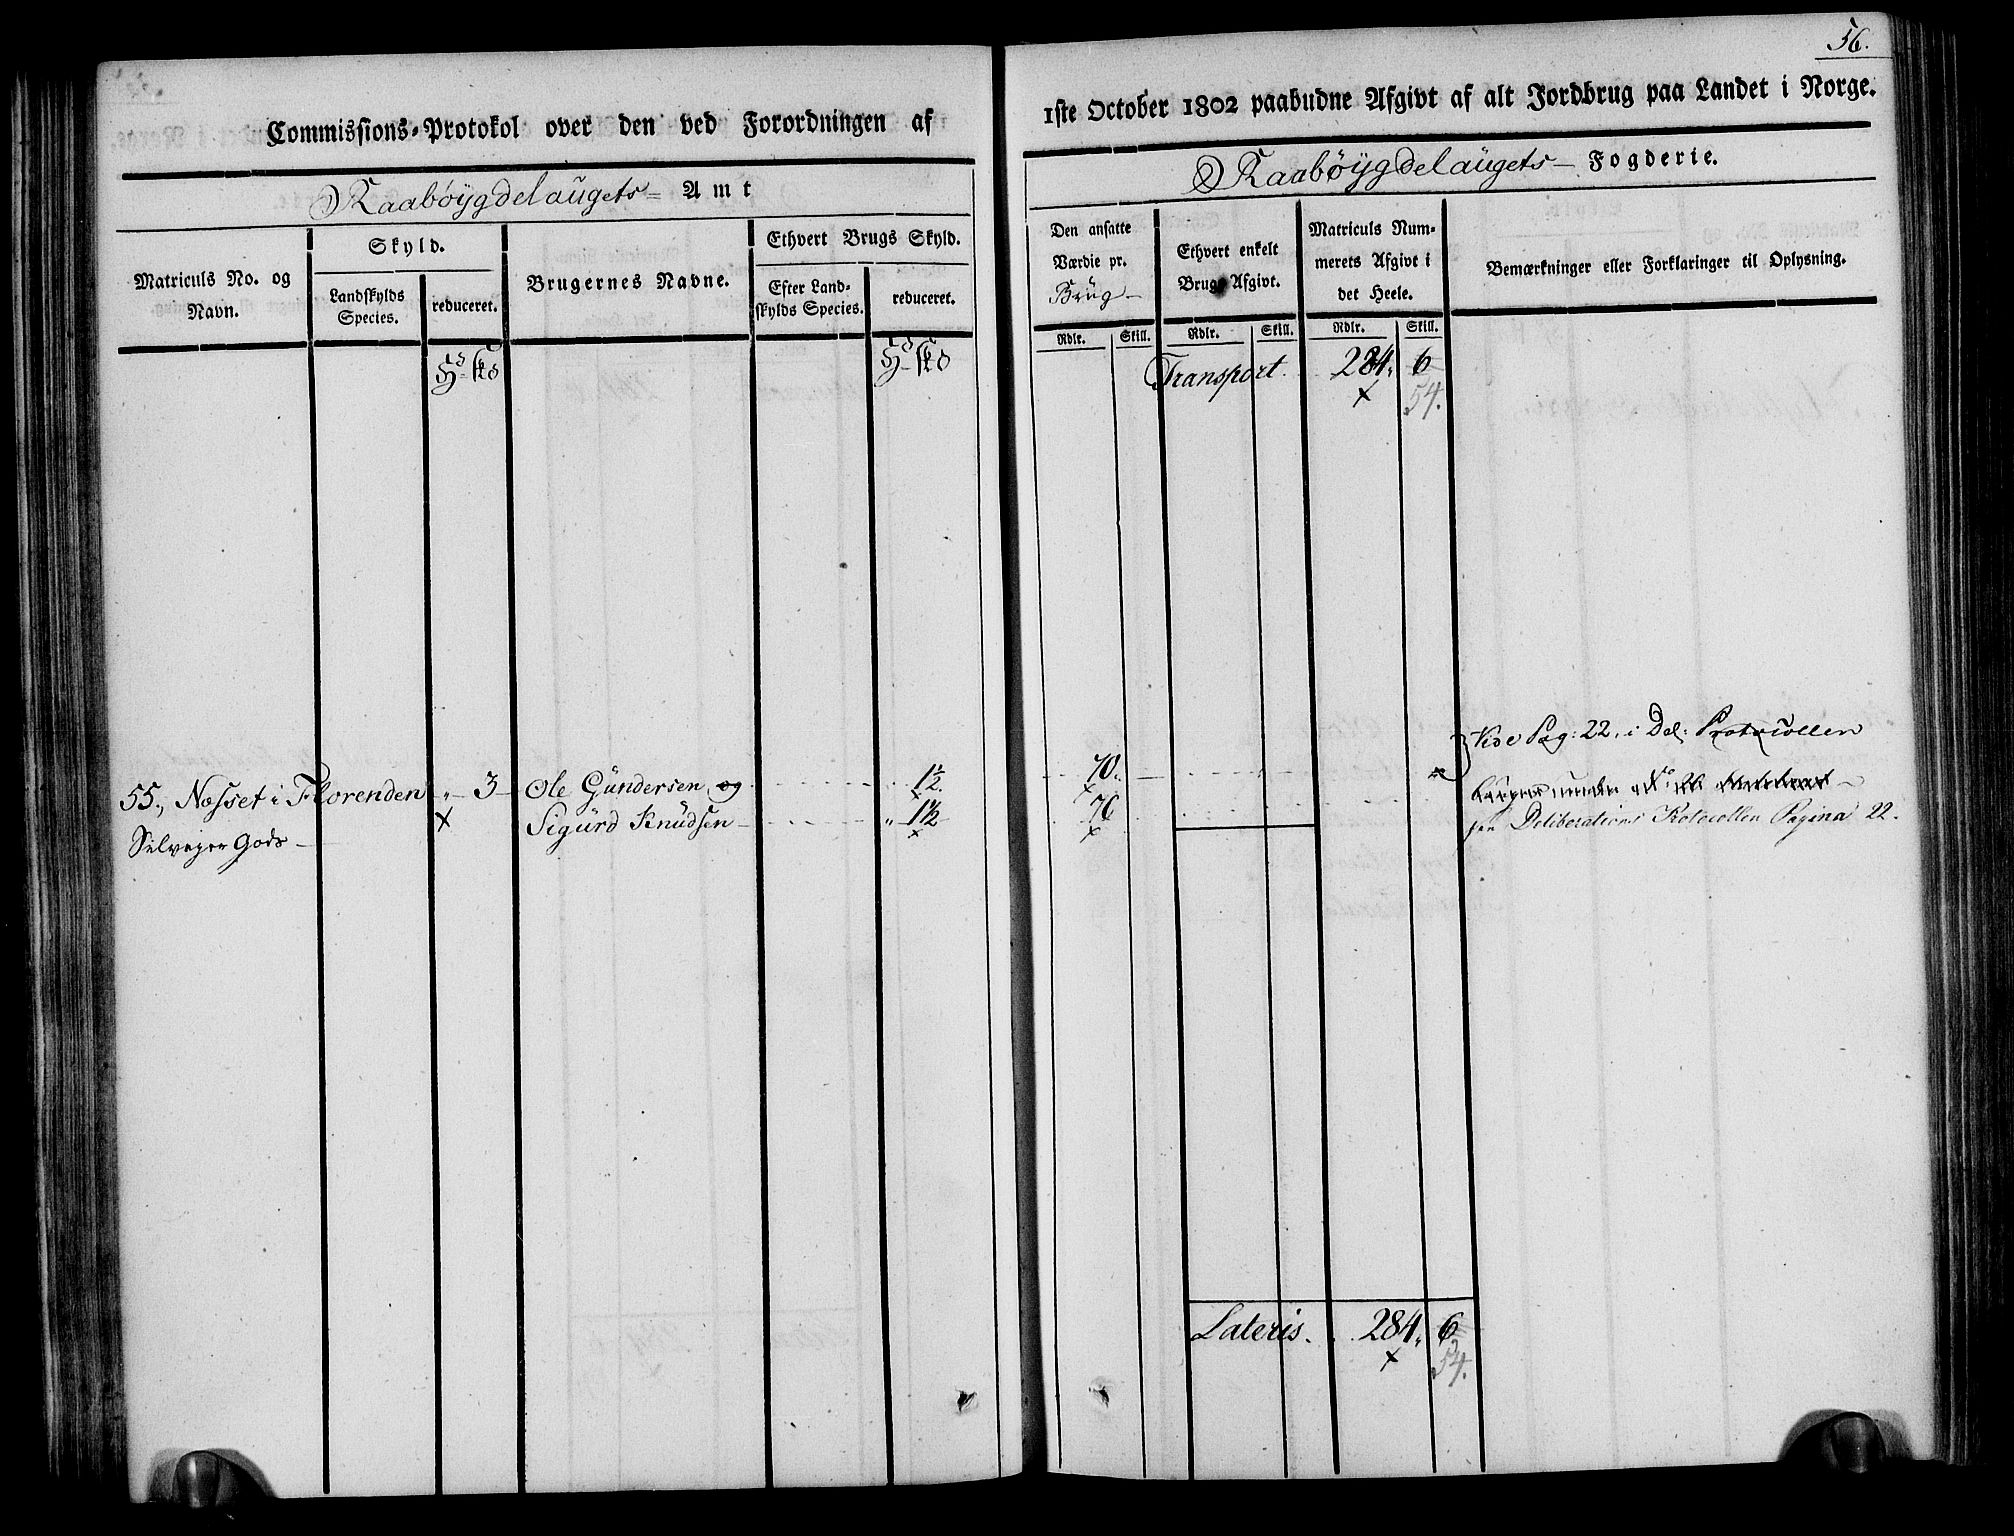 56.
Commissions-Protokol over den ved Forordningen af
1ste October 1802 paabudne Afgivt af alt Jordbrug paa Landet i Norge.
Raabøygdelaugets Amt
Raabøygdelaugets Fogderie.
Matriculs No. og Navn.
Skyld.
Landskylds Species.
reduceret.
Brugernes Navne.
Ethvert Brugs Skyld.
Efter Landskylds Species.
reduceret.
Den ansatte Værdie pr. Brug
Ethvert enkelt Brugs Afgivt.
Matriculs Nummerets Afgivt i det Heele.
Bemærkninger eller Forklaringer til Oplysning.
Rdlr. Skill. Rdlr. Skill. Rdlr. Skill.
Transport. 284, 6
54.
Vide Pag: 22, i Del: Protocollen
55, Næsset i Florenden " 3 Ole Gundersen og 1½ 70.
Silvejer Gods Sigurd Knudsen " 1½ 70
Deliberations Protocollen Pagina 22.
Lateris. 284, 6
54.